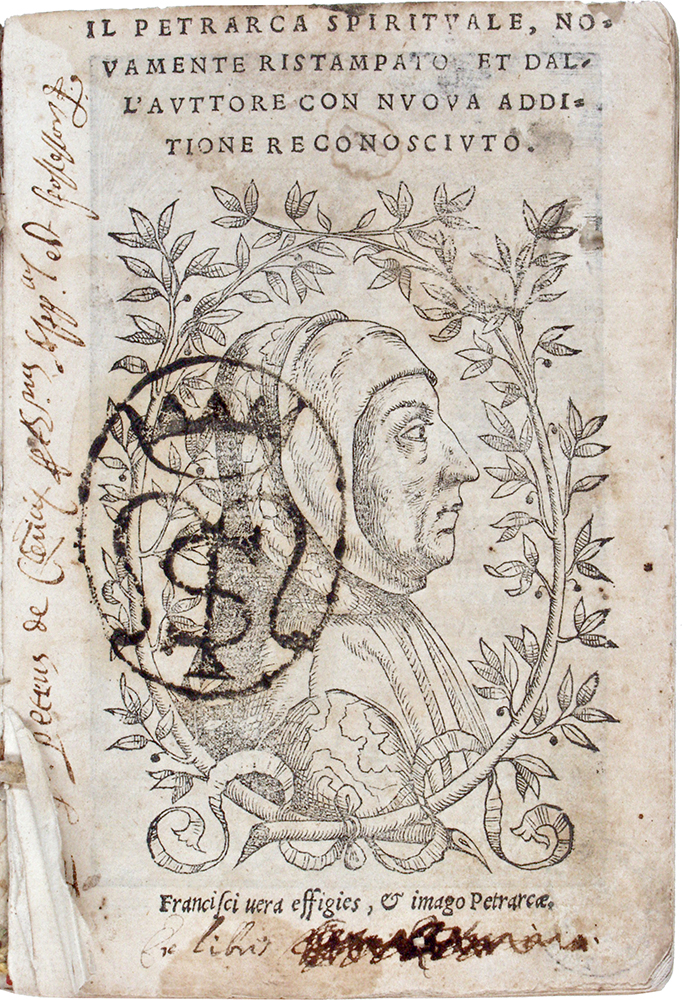 IL PETRARCA SPIRITVALE, NO-
VAMENTE RISTAMPATO, ET DAL-
L'AVTTORE CON NVOVA ADDI-
TIONE RECONOSCIVTO.
Petrus de
Francisci uera effigies, & imago Petrarcæ.
Ex libris